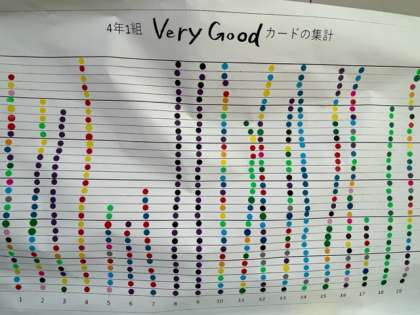 4年1組 Very Good カードの集計
1 2 3 4 5 6 7 8 9 10 11 12 13 14 15 16 17 18 19